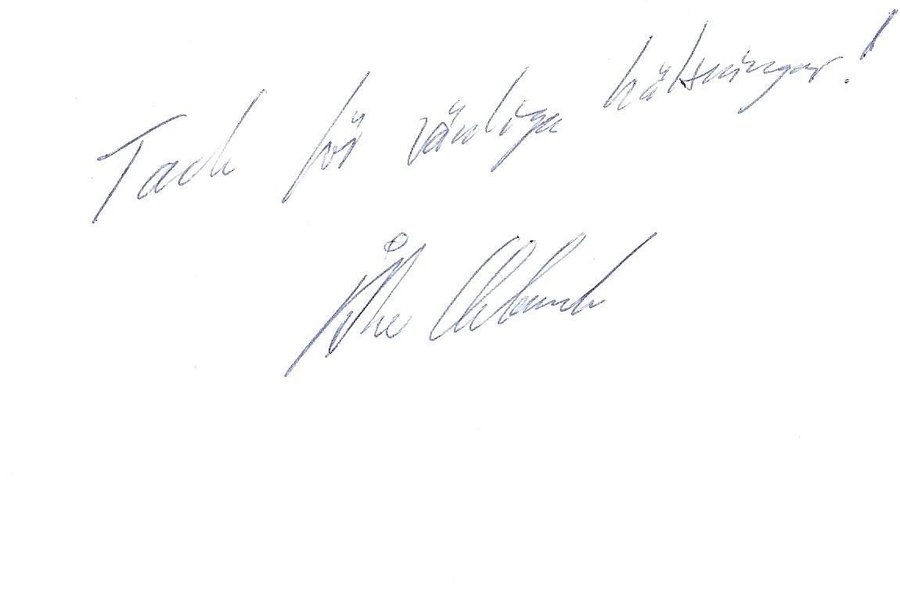 Tack för vänliga hälsningar!
Åke